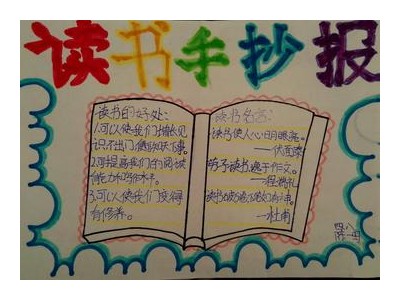 读书手抄报
读书的好处:
1.可以使我们增长见
识不出门便知天下事。
2.可提高我们的阅读
能力和写作水平。
3.可以使我们变得
有修养。
读书名言:
读书使人心明眼亮。
——伏尔泰
劳于读书,逸于作文。
——程端礼
读书破万卷,下笔如有神。
——杜甫